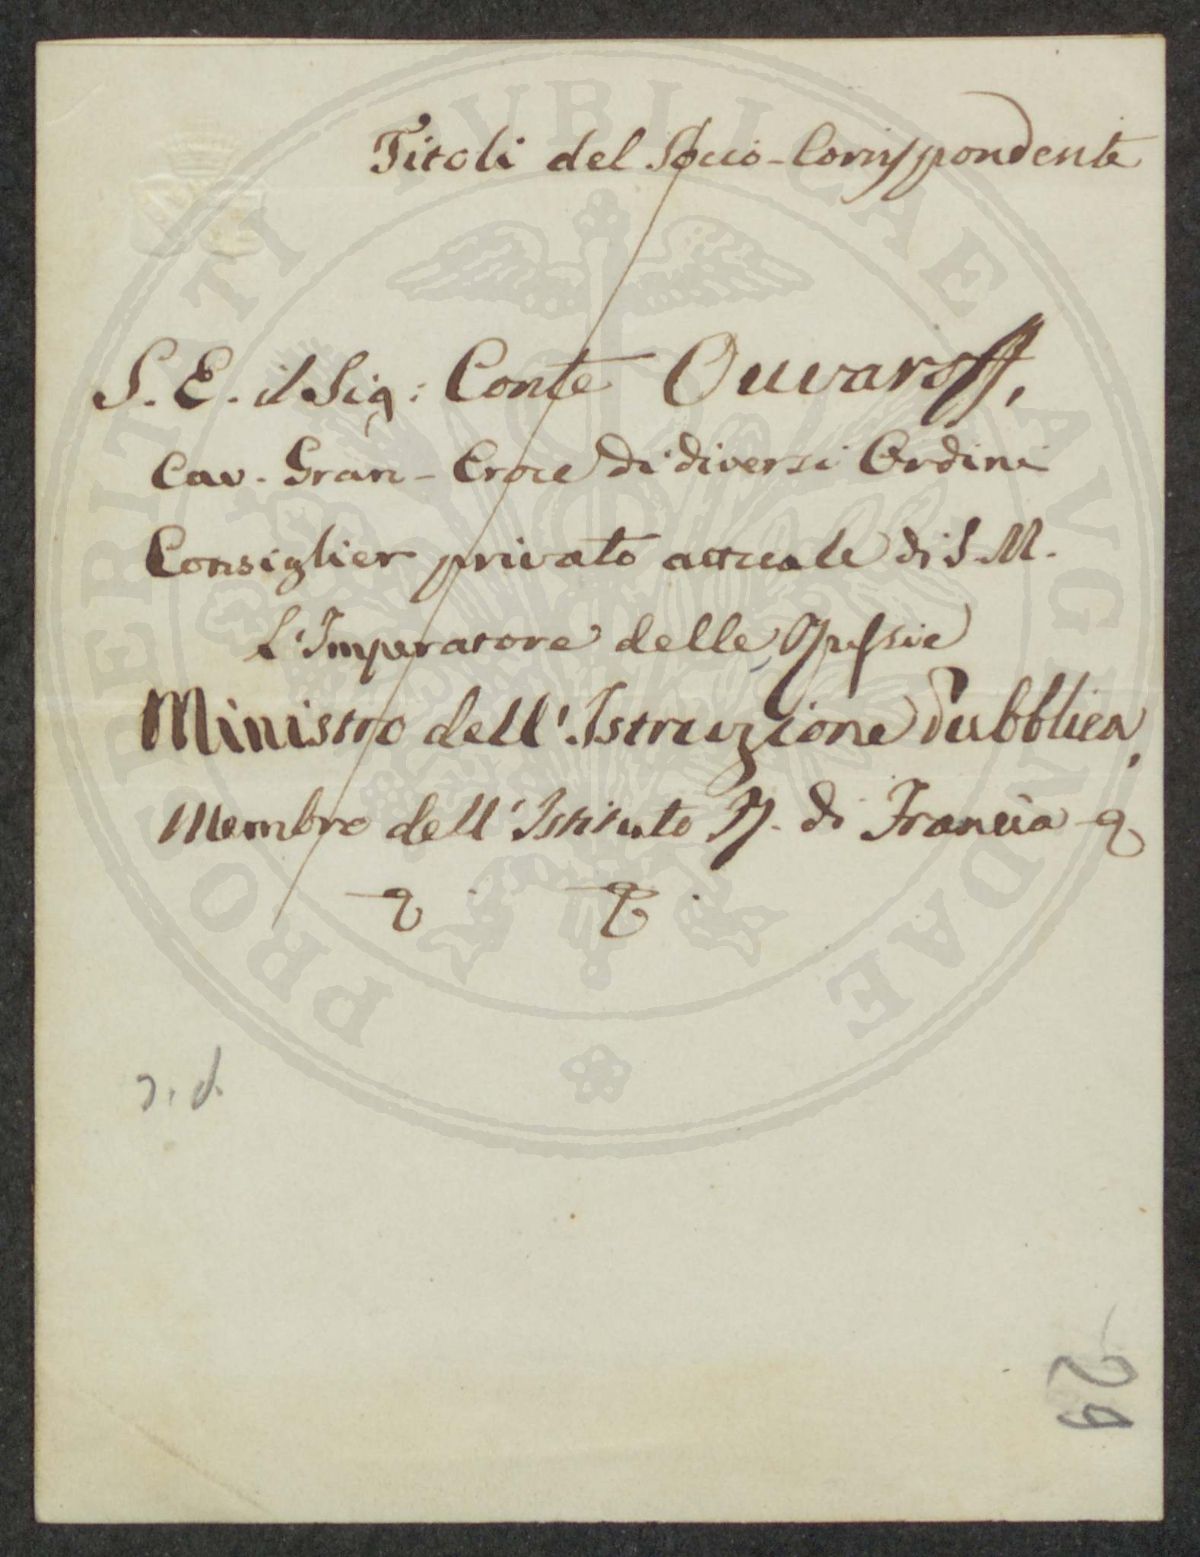 Titoli del Socio-Corrispondente
S. E. il Sig: Conte Ouvaroff,
Cav. Gran-Croce di diversi Ordini
Consiglier privato attuale di S. M.
L'Imperatore delle Russie
Ministro dell'Istruzione Pubblica,
Membro dell'Istituto R. di Francia
29
PROSPERITATI PVBLICAE AVGENDAE